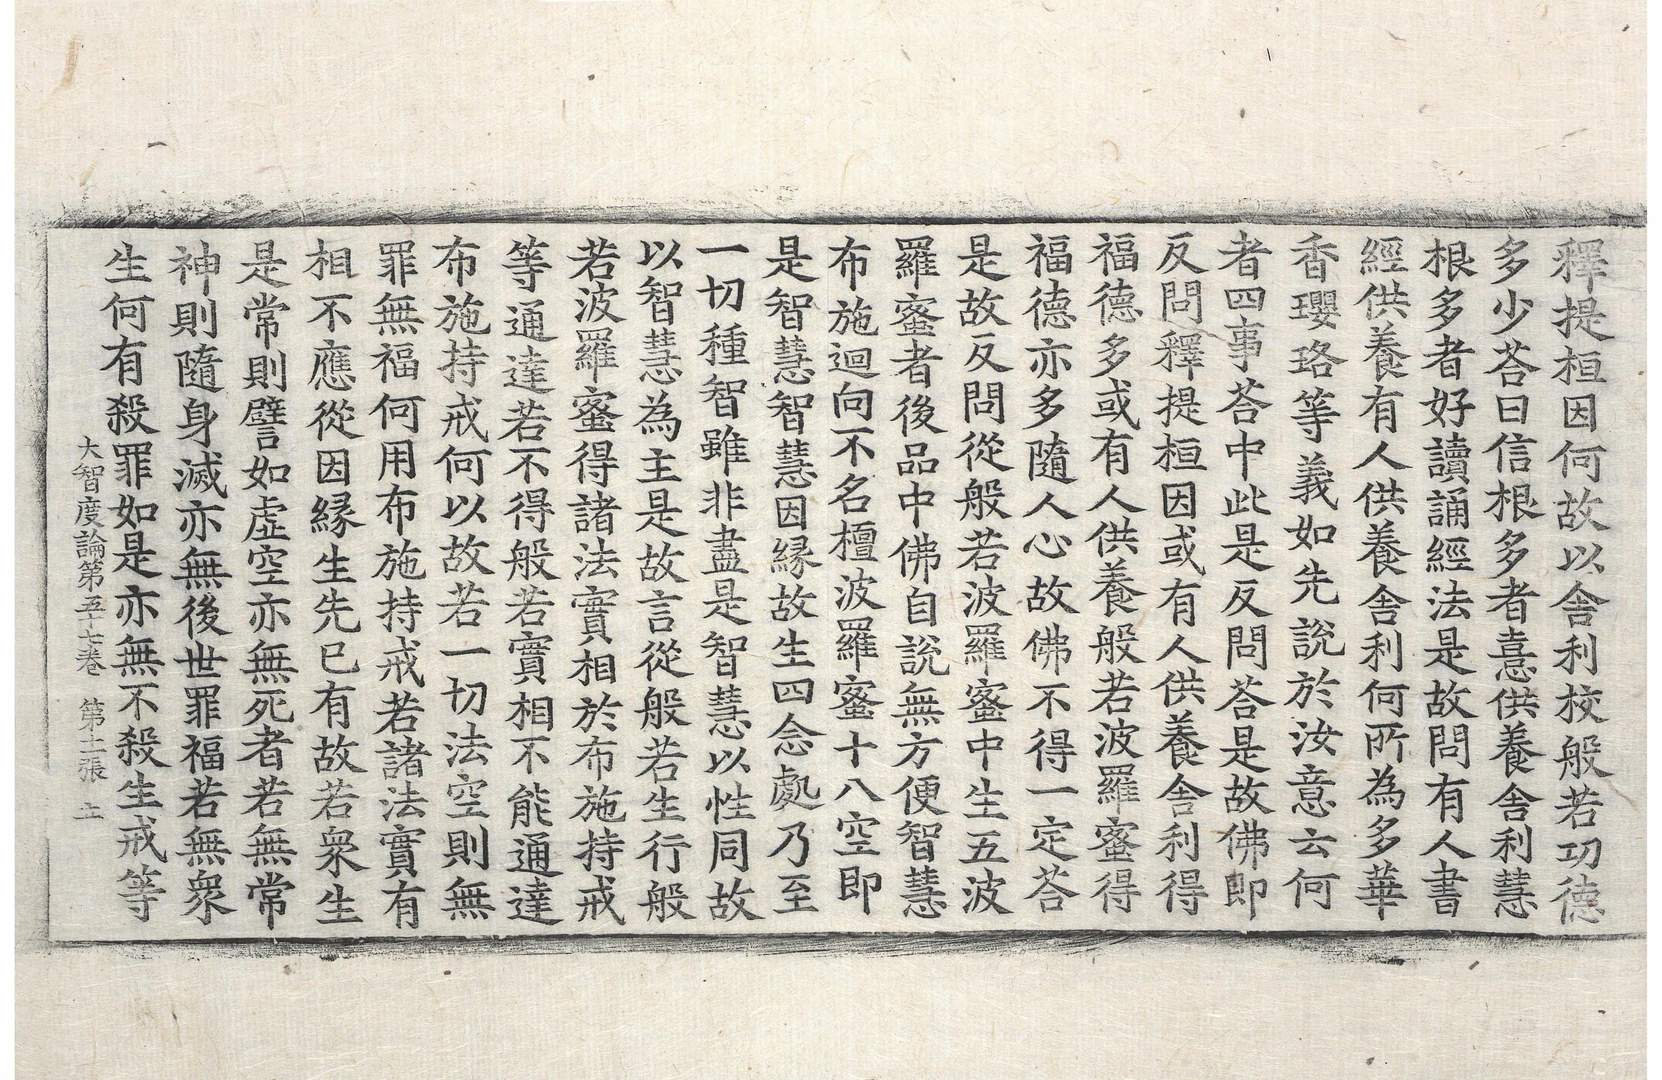 釋提桓因何故以舍利校般若功德
多少荅曰信根多者憙供養舍利慧
根多者好讀誦經法是故問有人書
經供養有人供養舍利何所為多華
香瓔珞等義如先說於汝意云何
者四事荅中此是反問荅是故佛即
反問釋提桓因或有人供養舍利得
福德多或有人供養般若波羅蜜得
福德亦多隨人心故佛不得一定荅
是故反問從般若波羅蜜中生五波
羅蜜者後品中佛自說無方便智慧
布施迴向不名檀波羅蜜十八空即
是智慧智慧因緣故生四念處乃至
一切種智雖非盡是智慧以性同故
以智慧為主是故言從般若生行般
若波羅蜜得諸法實相於布施持戒
等通達若不得般若實相不能通達
布施持戒何以故若一切法空則無
罪無福何用布施持戒若諸法實有
相不應從因緣生先已有故若衆生
是常則譬如虛空亦無死者若無常
神則隨身滅亦無後世罪福若無衆
生何有殺罪如是亦無不殺生戒等
大智度論第五十七卷 第十二張 立